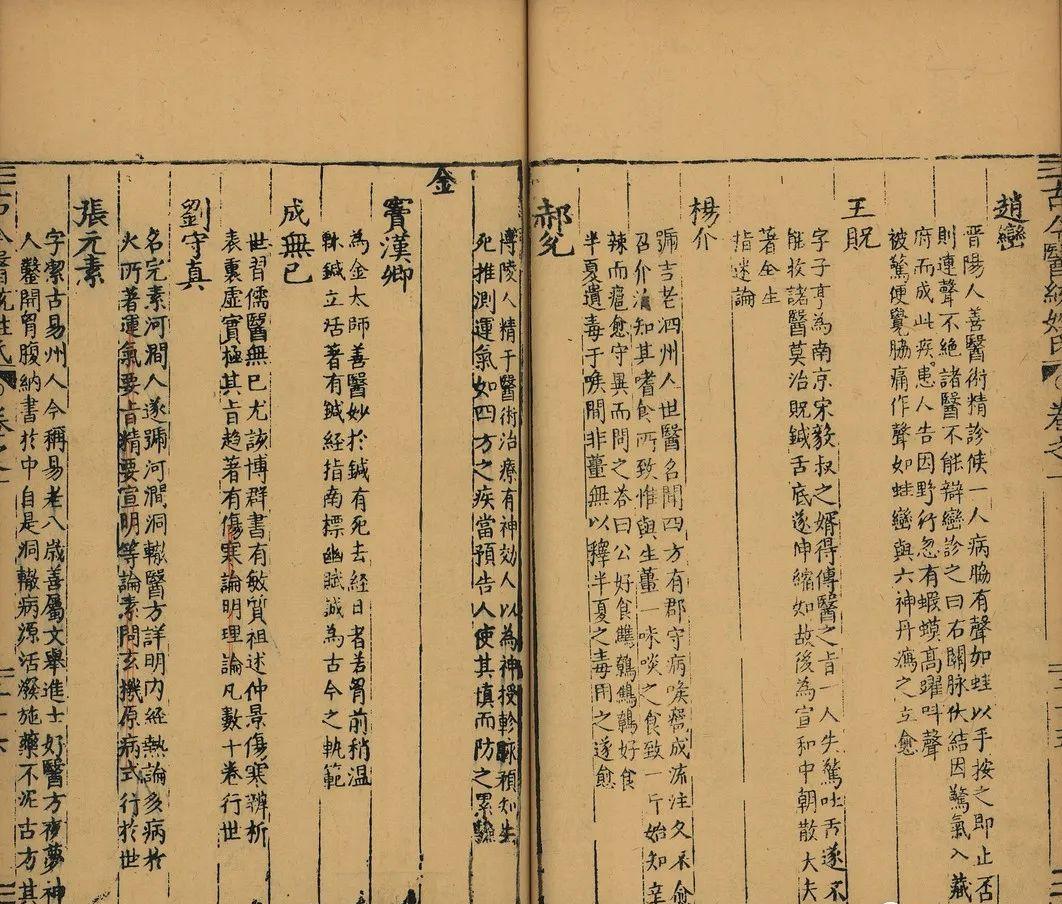 趙巒
晋陽人善醫術精診候一人病脇有聲如蛙以手按之即止否
則連聲不絕諸醫不能辯巒診之曰右關脉伏結因驚氣入藏
府而成此疾患人告因野行忽有蝦蟆高躍呌聲
被驚便覺脇痛作聲如蛙巒與六神丹瀉之立愈
王貺
字子亨為南京宋毅叔之婿得傳醫之旨一人失驚吐舌遂不
能收諸醫莫治貺鍼舌底遂伸縮如故後為宣和中朝散大夫
著全生
指迷論
楊介
號吉老泗州人世醫名聞四方有郡守病喉癰成流注久不愈
召介治知其嗜食所致惟與生薑一味啖之食致一斤始知辛
辣而癰愈守異而問之答曰公好食鷓鴣鷓好食
半夏遺毒于喉間非薑無以釋半夏之毒用之遂愈
郝允
博陵人精于醫術治療有神効人以為神授軫脈預知生
死推測運氣如四方之疾當預告人使其慎而防之累驗
金
竇漢卿
為金太師善醫妙於鍼有死去經日者若胷前稍溫
輒鍼立活著有鍼經指南標幽賦誠為古今之軌範
成無已
世習儒醫無已尤該博群書有敏質祖述仲景傷寒辨析
表裏虛實極其旨趋著有傷寒論明理論凡數十卷行世
劉守真
名完素河澗人遂號河澗洞轍醫方詳明內經熱論多病於
火所著運氣要旨精要宣明等論素問玄機原病式行於世
張元素
字潔古易州人今稱易老八歲善屬文舉進士好醫方夜夢神
人鑿開胷腹納書於中自是洞轍病源活潑施藥不泥古方其